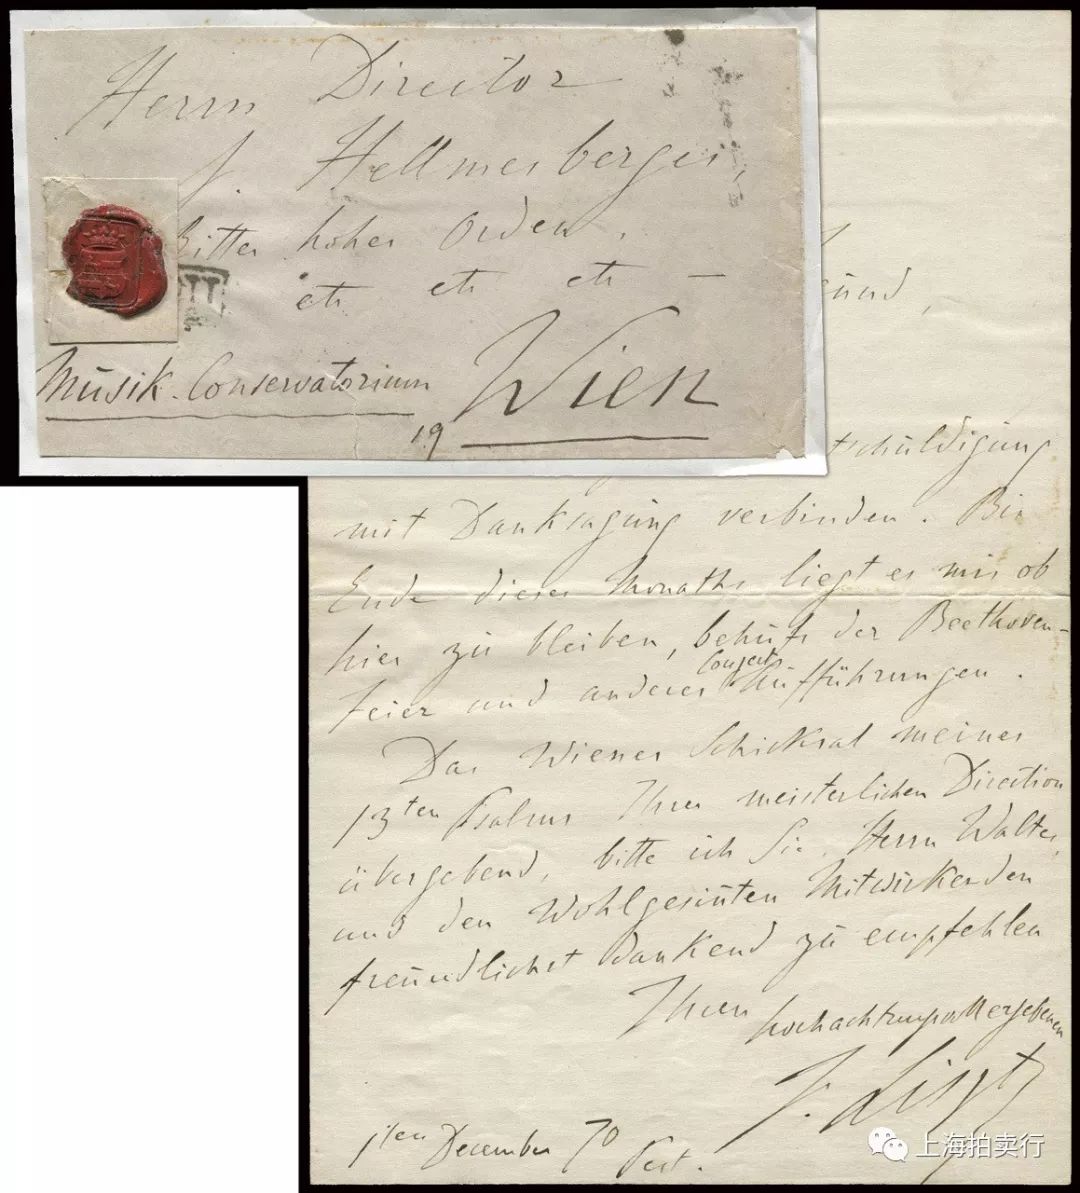 Herrn Director
J. Hellmesberger
Ritter hoher Orden,
etc etc etc –
Musik-Conservatorium
Wien
19
und,
tschuldigung
mit Danksagung verbinden. Bis
Ende dieses Monaths liegt es mir ob
hier zu bleiben, behufs der Beethoven-
Feier und anderer Concert-Aufführungen.
Das Wiener Schicksal meines
13ten Psalms Ihrer meisterlichen Direction
übergebend, bitte ich Sie, Herrn Walter,
und den Wohlgesinten Mitwirkenden
freundlichst dankend zu empfehlen
Ihren hochachtungsvoll ergebenen
F. Liszt
1ten December 70
Pest.
上海拍卖行